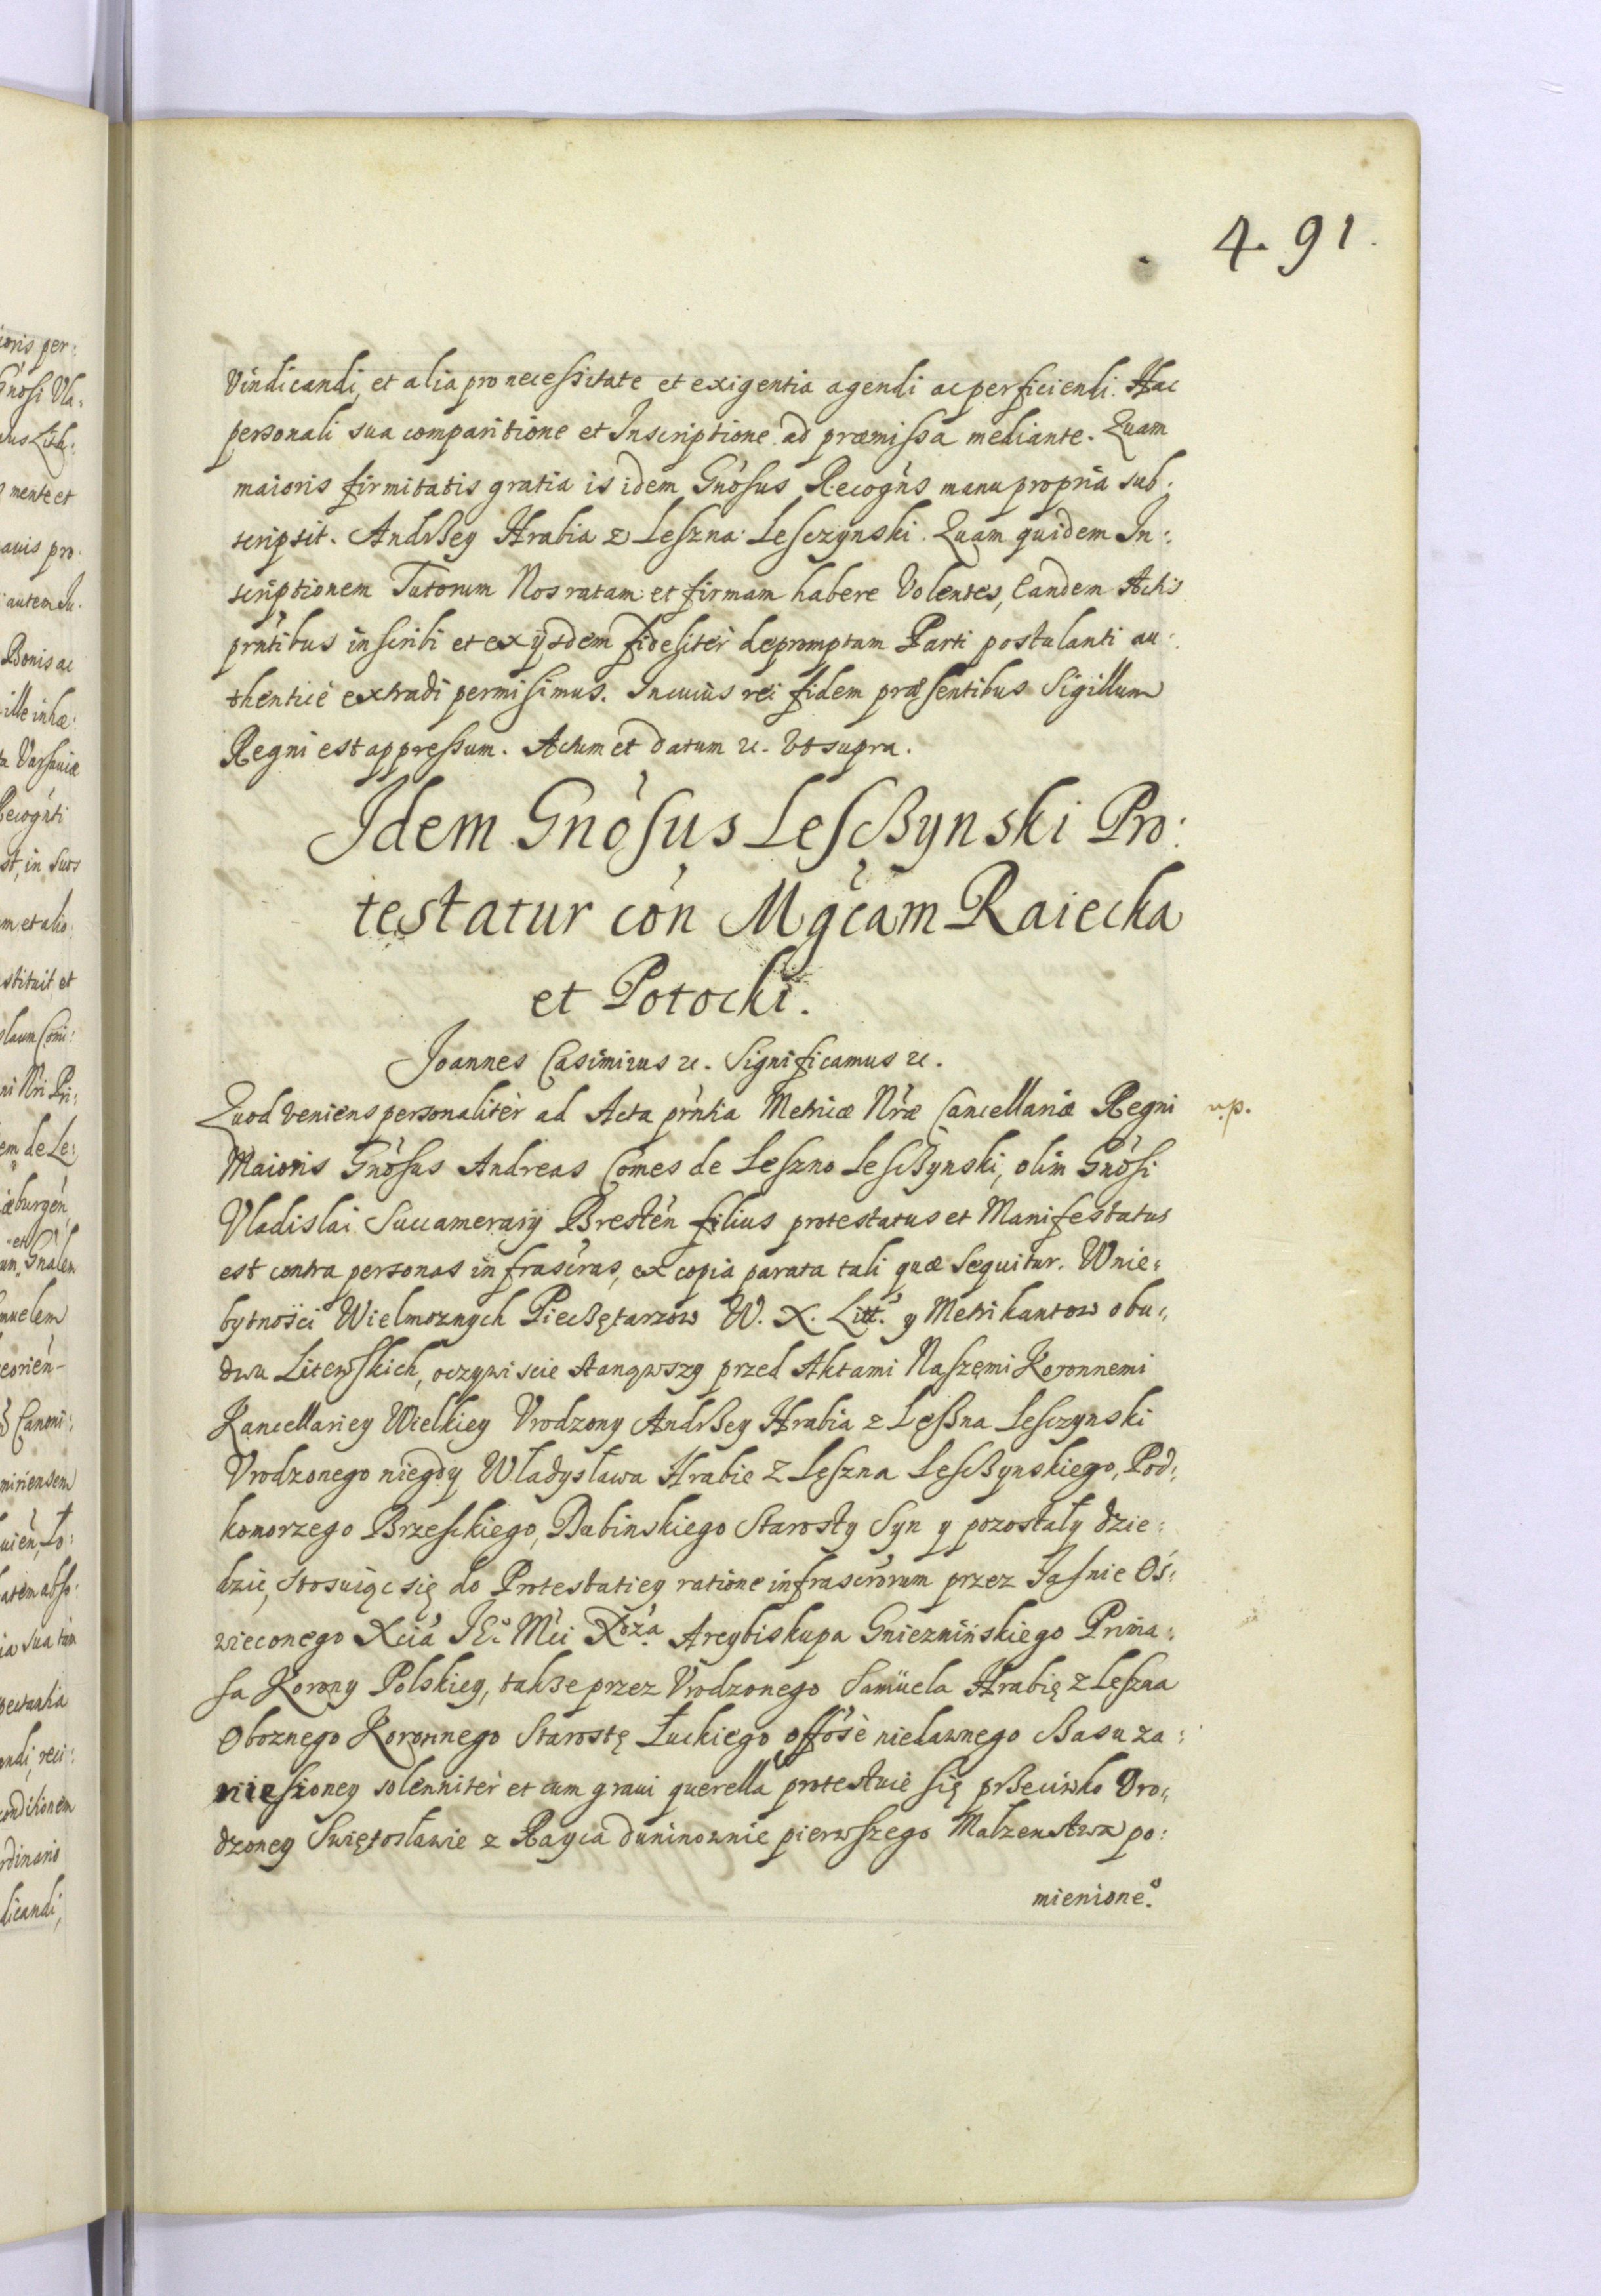 4. 91.
Vindicandi, et alia pro necessitate et exigentia agendi ac perficiendi. Hac
personali sua comparitione et Inscriptione ad præmissa mediante. Quam
maioris firmitatis gratia is idem Gnosus Recogńs manu propria sub:
scripsit. Andrßey Hrabia z Leszna Lesczynski. Quam quidem In:
scriptionem Tutorum Nos ratam et firmam habere Volentes, Eandem Actis
prńtibus inscribi et ex ijsdem fideliter depromptam Parti postulanti au:
thenticè extradi permisimus. In cuius rei fidem præsentibus Sigillum
Regni est appressum. Actum et datum &c. Ut supra.
Idem Gnosus Lescßynski Pro:
testatur coń Mgcam Raiecka
et Potocki.
Joannes Casimirus &c. Significamus &c.
Quod veniens personalitèr ad Acta prńtia Metricæ Nŕæ Cancellariæ Regni
n.p.
Maioris Gnosus Andreas Comes de Leszno Lescßynski, olim Gnosi
Vladislai Succamerarij Bresteń filius protestatus et Manifestatus
est contra personas infrascŕas, ex copia parata tali quæ sequitur. W nie:
bytnosci Wielmoznych Piecßętarzow W. X. Litt. y Metrikantow obu:
dwu Litewskich, oczywiscie stanąwszy przed Aktami Naszęmi Koronnemi
Kancellariey Wielkiey Vrodzony Andrßey Hrabia z Leßna Lesczynski
Vrodzonego niegdy Władysława Hrabie z Leszna Lescßynskiego, Pod:
komorzego Brzesckiego, Dubinskiego Starosty Syn y pozostały dzie:
dzic, stosuiąc się do Protestatiey ratione infrascŕorum przez Jasnie Oś:
wieconego Xcia JE° Mci Xdza Arcybiskupa Gnieznińskiego Prima:
sa Korony Polskiey, takze przez Vrodzonego Samüela Hrabię z Leszna
Oboznego Koronnego Starostę Łuckiego offosè niedawnego czasu za:
niesioney solennitèr et cum graui querella protestuie się prßeciwko Vro:
dzoney Swiętosławie z Rayca duninownie pierwszego Małzenstwa po:
mienione°.